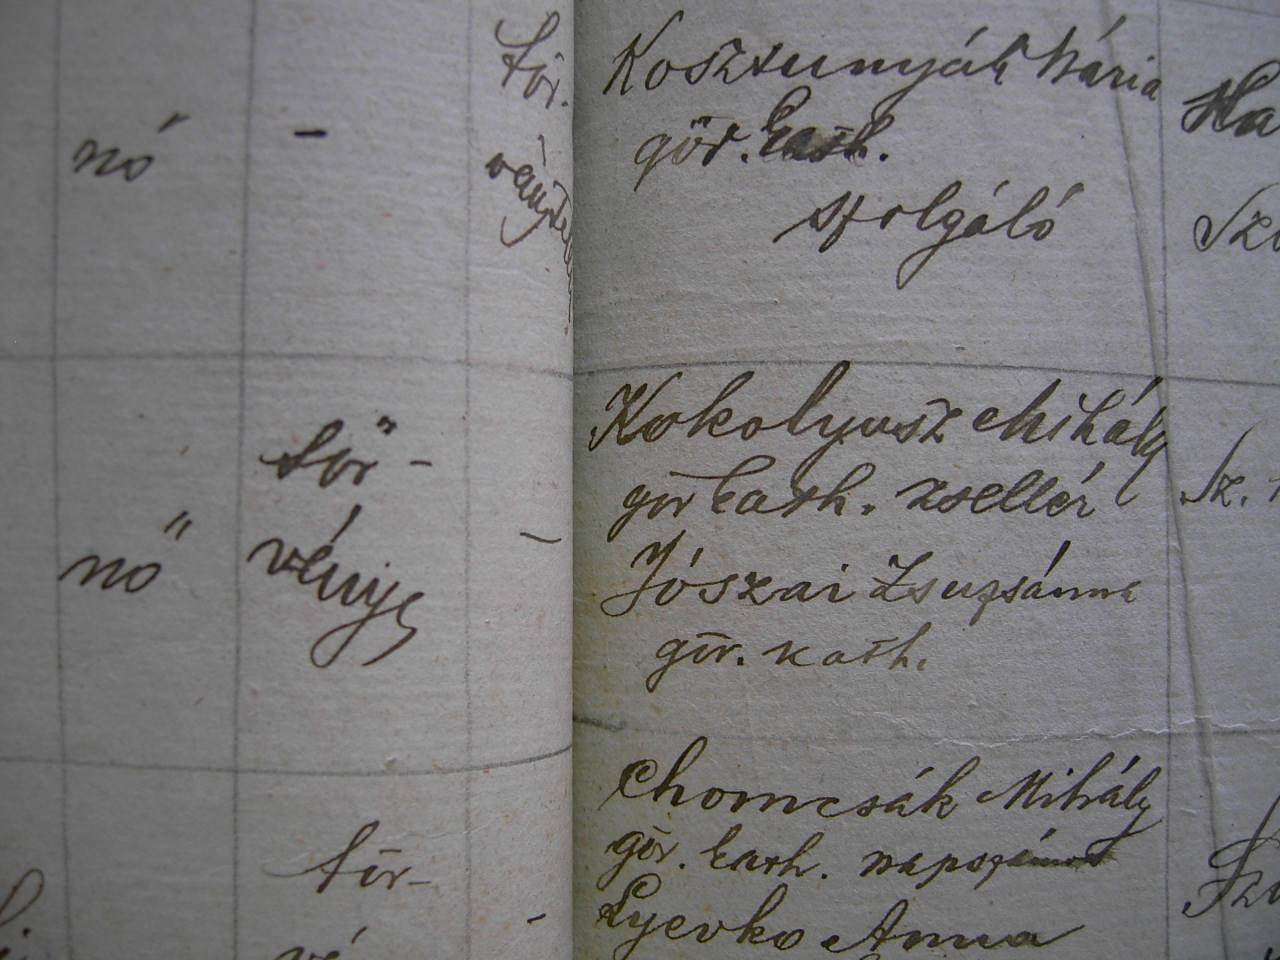 nő - tör-
vénytelen
Kosztunyák Mária
gör. Cath.
szolgáló
Ha
Szo
nő tör-
vénys -
Kokolyusz Mihály
gör Cath. zsellér
Jószai Zsuzsánna
gör. kath.
Sz.
tör-
vé
-
Chomcsák Mihály
gör. Cath. napszámos
Lyevko Anna